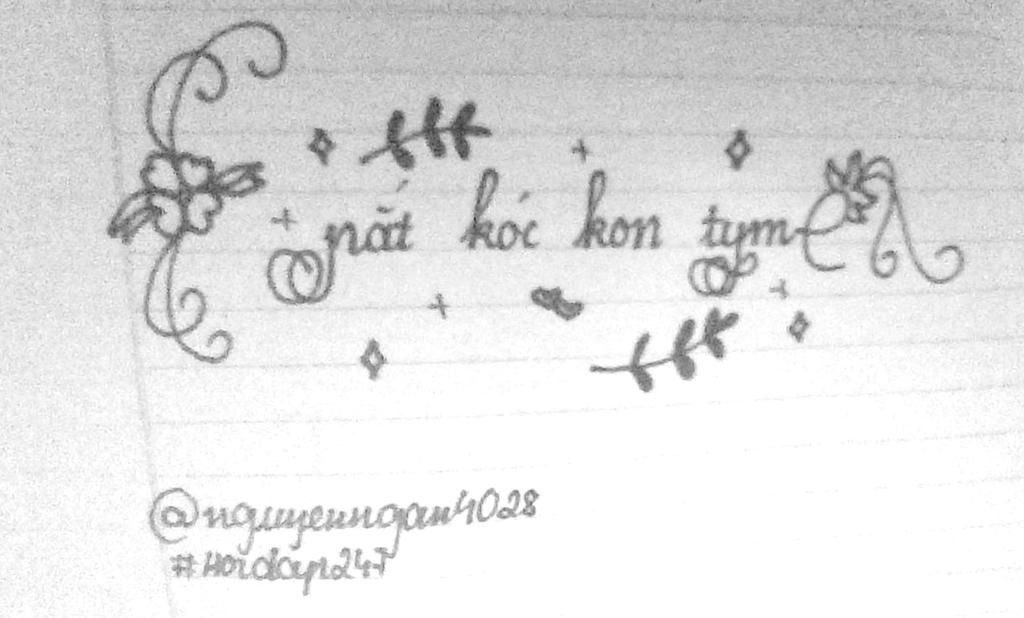 nắt kóc kon tym
@nguyenngan4028
#Hoidap247